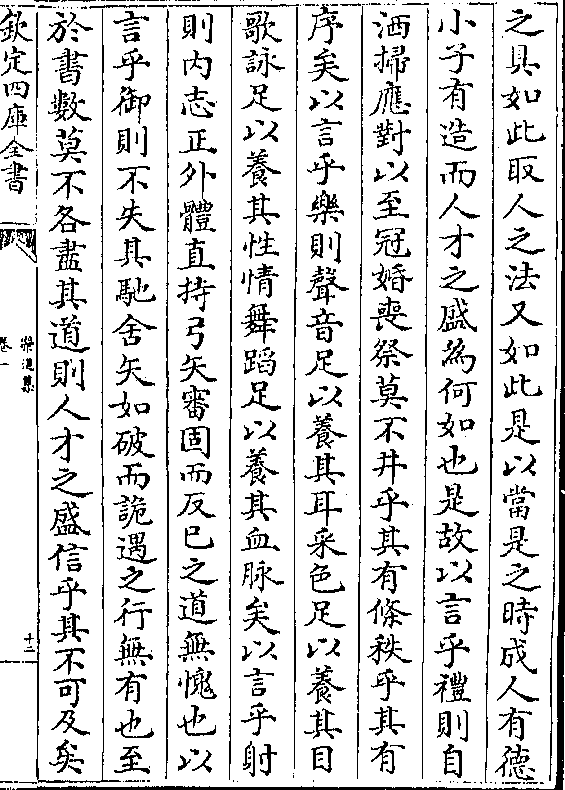 之具如此取人之法又如此是以當是之時成人有德
小子有造而人才之盛為何如也是故以言乎禮則自
洒掃應對以至冠婚喪祭莫不井乎其有條秩乎其有
序矣以言乎樂則聲音足以養其耳采色足以養其目
歌詠足以養其性情舞蹈足以養其血脉矣以言乎射
則内志正外體直持弓矢審固而反己之道無愧也以
言乎御則不失其馳舍矢如破而詭遇之行無有也至
於書數莫不各盡其道則人才之盛信乎其不可及矣
欽定四庫全書
卷一
十二